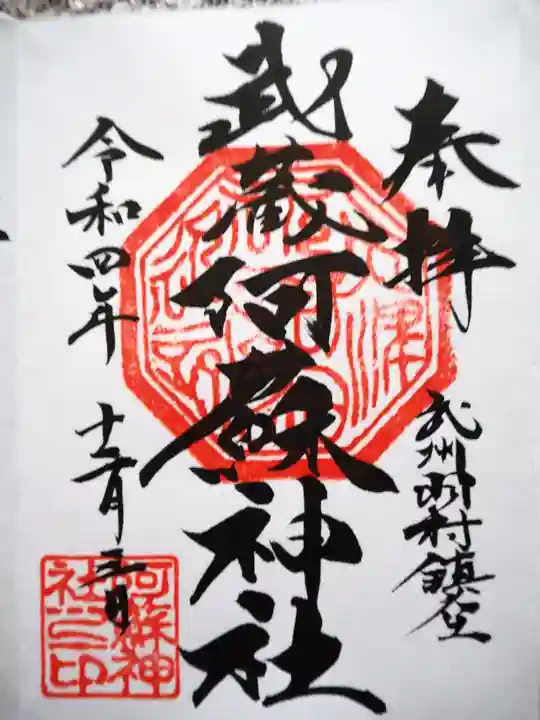 奉拝
武州羽村鎮座
武蔵阿蘇神社
令和四年
十二月三日
阿蘇神
社之印